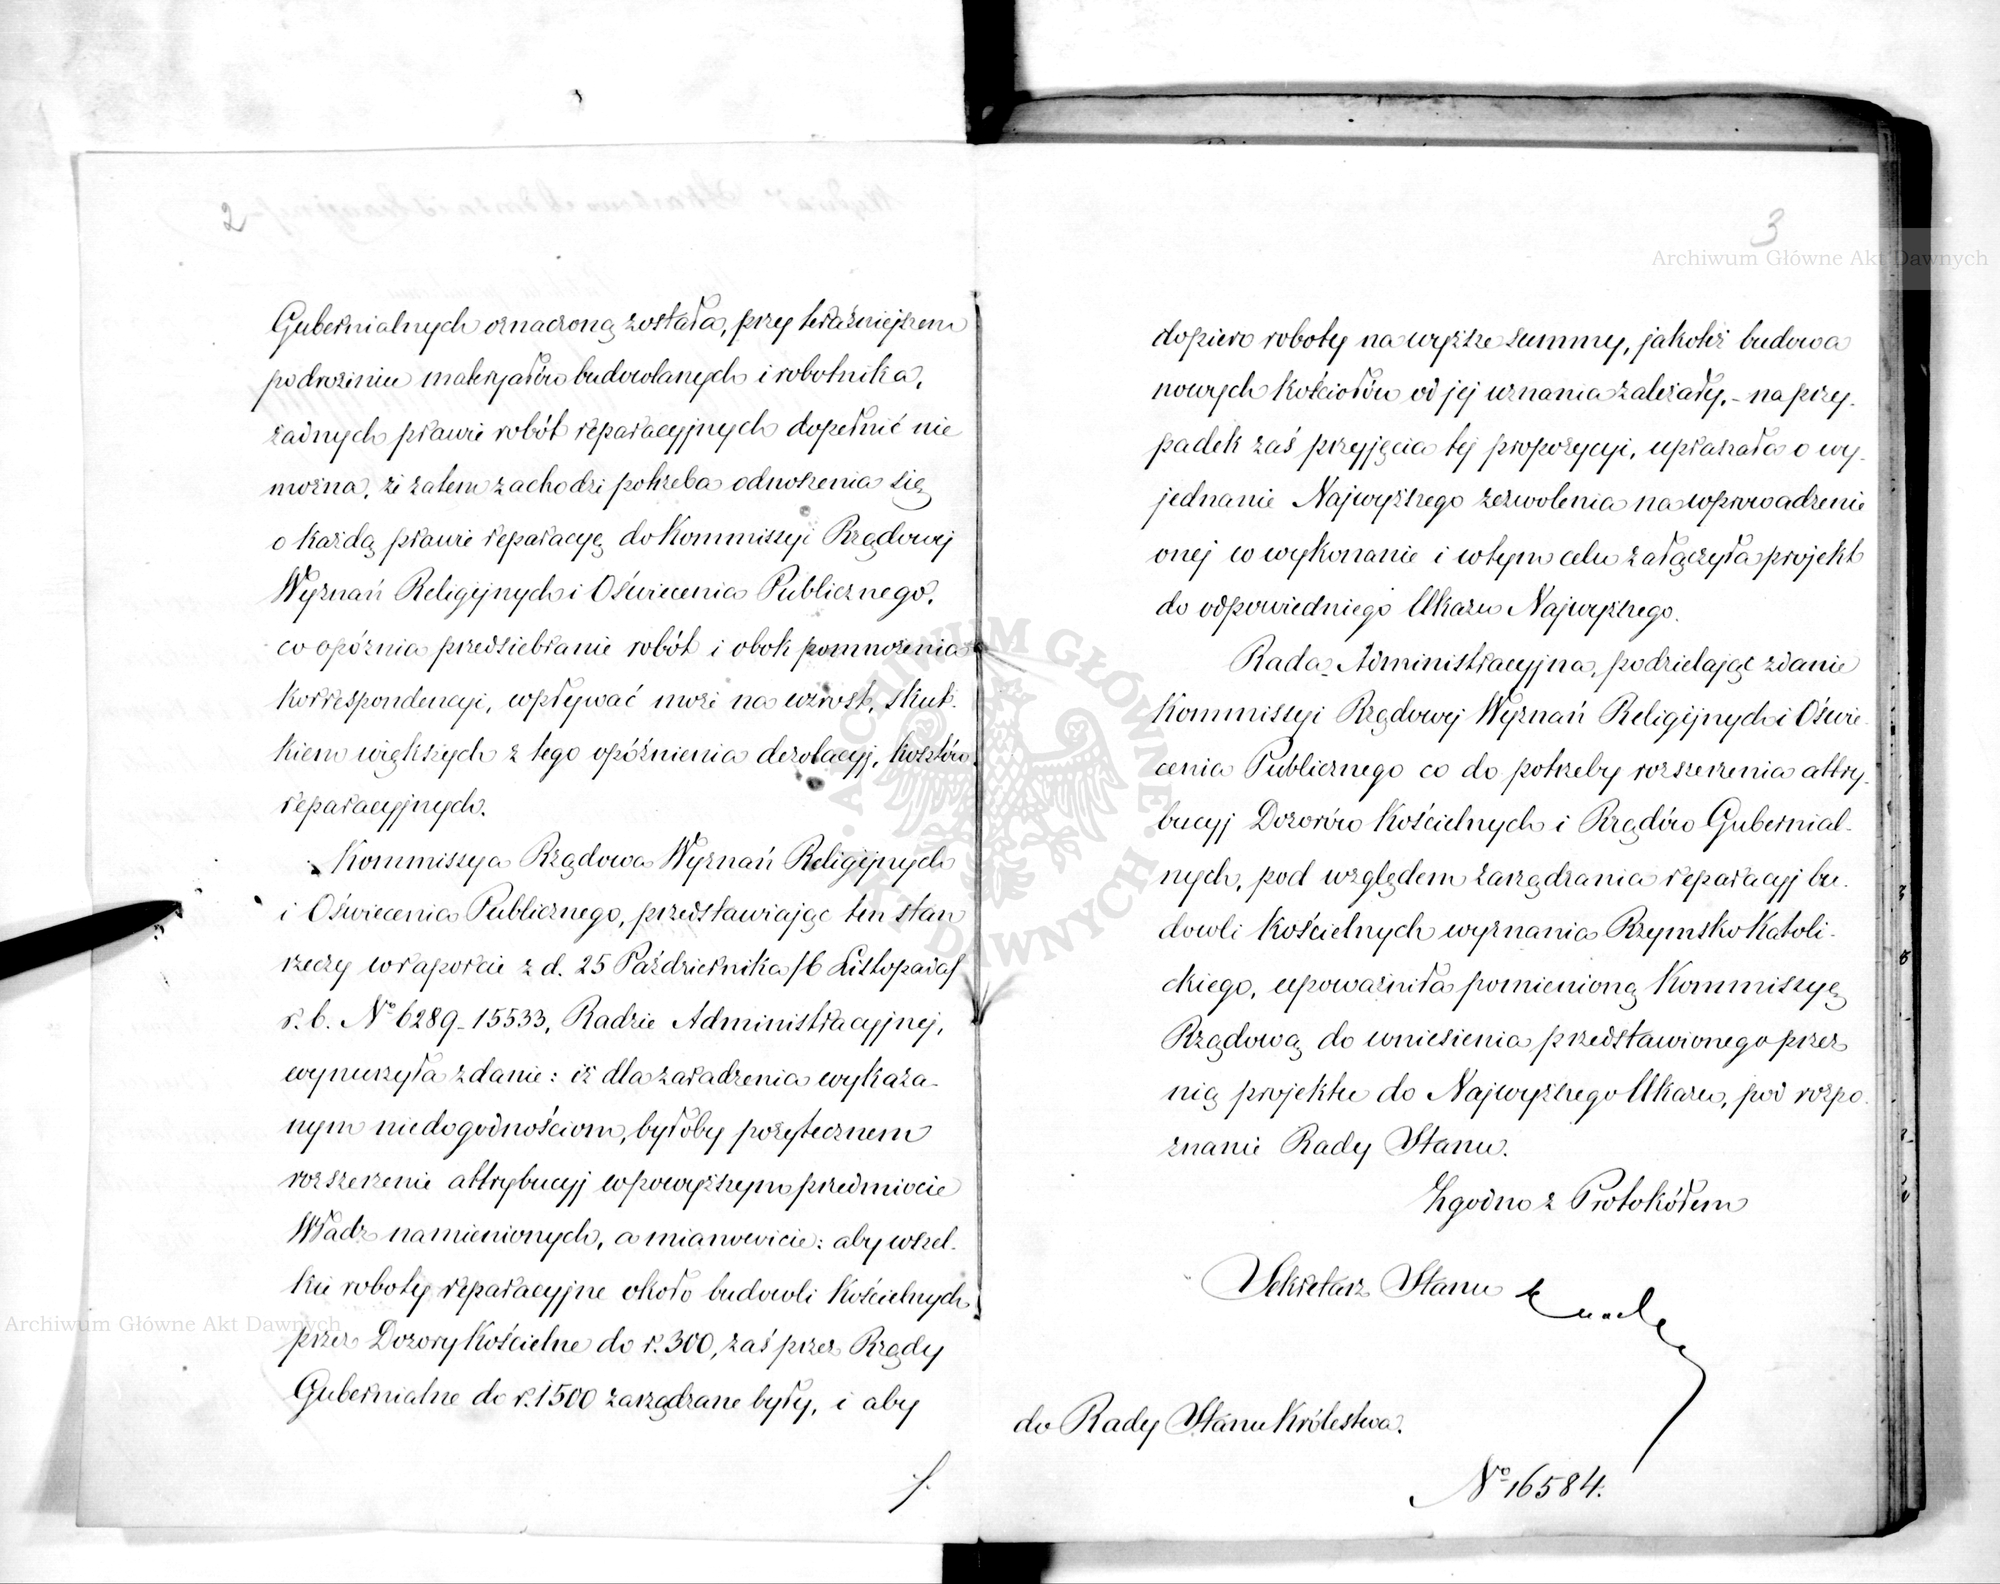 2
Gubernialnych oznaczoną została, przy teraźniejszem
podrożeniu materyałów budowlanych i robotnika,
żadnych prawie robót reparacyjnych dopełnić nie
można, że zatem zachodzi potrzeba odnoszenia się
o każdą prawie reparacyę do Kommissyi Rządowej
Wyznań Religijnych i Oświecenia Publicznego,
co opóźnia przedsiebranie robót i obok pomnożenia
korrespondencyi, wpływać może na wzrost, skut-
kiem większych z tego opóźnienia dezolacyj, kosztów
reparacyjnych.
Kommissya Rządowa Wyznań Religijnych
i Oświecenia Publicznego, przedstawiając ten stan
rzeczy w raporcie z d. 25 Października /6 Listopada/
r. b. Nº 6289-15533, Radzie Administracyjnej,
wynurzyła zdanie: iż dla zaradzenia wykaza-
nym niedogodnościom, byłoby pożytecznem
rozszerzenie attrybucyj w powyższym przedmiocie
Władz namienionych, a mianowicie: aby wszel-
kie roboty reparacyjne około budowli Kościelnych
przez Dozory Kościelne do r. 300, zaś przez Rządy
Gubernialne do r. 1500 zarządzane były, i aby
3
dopiero roboty na wyższe summy, jakoteż budowa
nowych Kościołów od jej uznania zależały, - na przy-
padek zaś przyjęcia tej propozycyi, upraszała o wy-
jednanie Najwyższego zezwolenia na wprowadzenie
onej w wykonanie i w tym celu załączyła projekt
do odpowiedniego Ukazu Najwyższego.
Rada Administracyjna, podzielając zdanie
Kommissyi Rządowej Wyznań Religijnych i Oświe-
cenia Publicznego co do potrzeby rozszerzenia attry-
bucyj Dozorów Kościelnych i Rządów Gubernial-
nych, pod względem zarządzania reparacyj bu-
dowli Kościelnych wyznania Rzymsko Katoli-
ckiego, upoważniła pomienioną Kommissyę
Rządową do wniesienia przedstawionego przez
nią projektu do Najwyższego Ukazu, pod rozpo-
znanie Rady Stanu.
Zgodno z Protokółem
Sekretarz Stanu
do Rady Stanu Królestwa.
Nº 16584.
Archiwum Główne Akt Dawnych
Archiwum Główne Akt Dawnych
ARCHIWUM GŁÓWNE AKT DAWNYCH